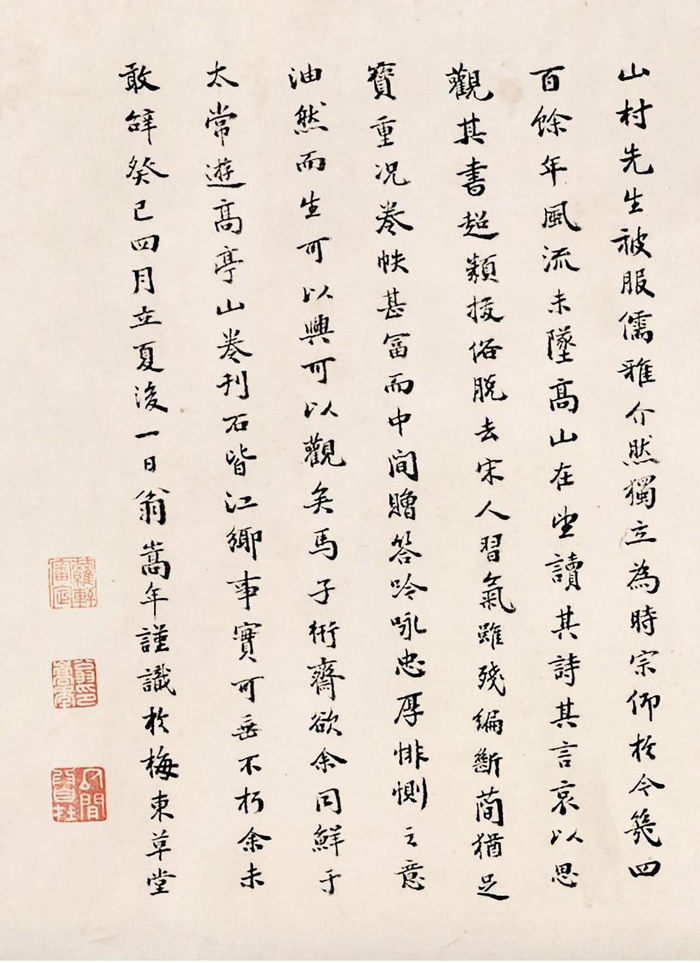 山村先生被服儒雅介然獨立為時宗仰於今筭四
百餘年風流未墜高山在望讀其詩其言哀以思
觀其書超類拔俗脫去宋人習氣雖殘編斷簡猶足
寶重況卷帙甚富而中間贈答吟咏忠厚悱惻之意
油然而生可以興可以觀矣馬子衎齋欲余同鮮于
太常遊高亭山卷刊石皆江鄉事實可垂不朽余未
敢辭癸巳四月立夏後一日翁嵩年謹識於梅東草堂